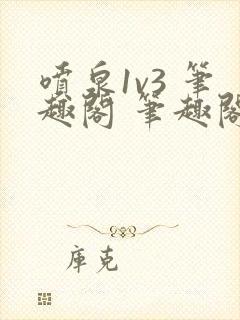 噴泉1v3 筆
趣閣 筆趣閣
庫克